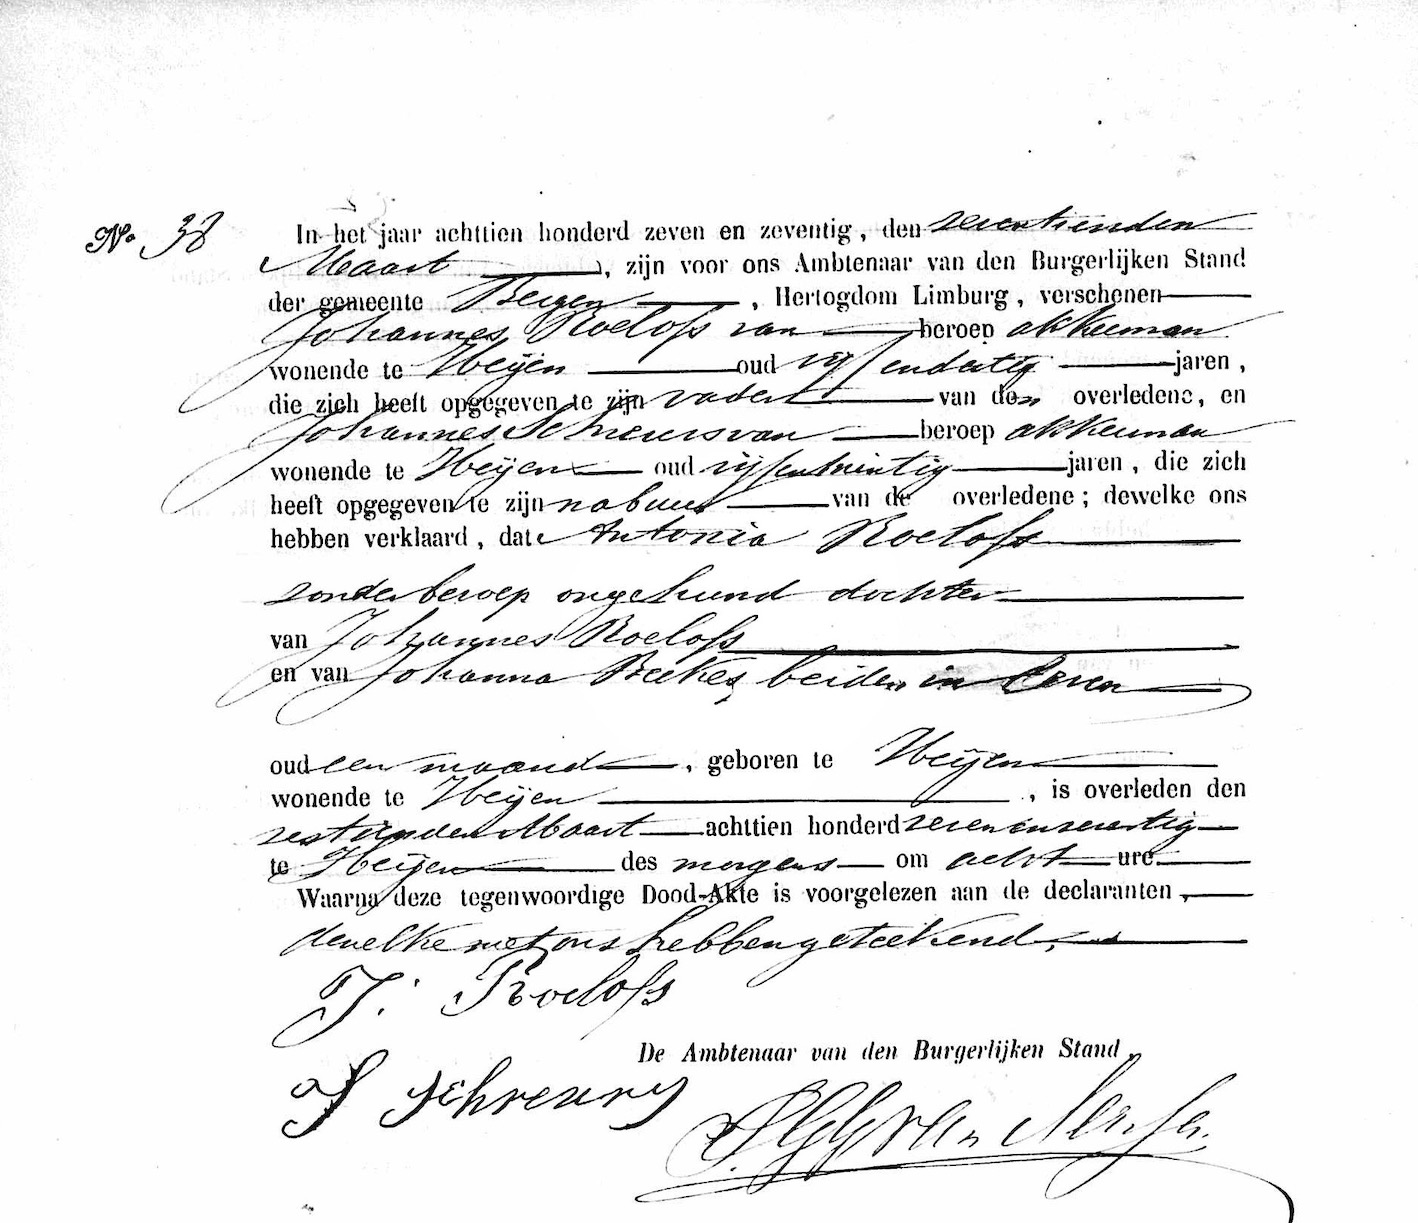 No 38 In het jaar achttien honderd zeven en zeventig, den zeventienden
Maart, zijn voor ons Ambtenaar van den Burgerlijken Stand
der gemeente Bergen, Hertogdom Limburg, verschenen
Johannes Roelofs van beroep akkerman
wonende te Heijen oud vijfendertig jaren,
die zich heeft opgegeven te zijn vader van den overledene, en
Johannes Schreurs van beroep akkerman
wonende te Heijen oud vijfentwintig jaren, die zich
heeft opgegeven te zijn nabuur van de overledene; dewelke ons
hebben verklaard, dat Antonia Roelofs
zonder beroep ongehuwd dochter
van Johannes Roelofs
en van Johanna beiden in leven
oud een maand, geboren te Heijen
wonende te Heijen, is overleden den
zestienden Maart achttien honderd zevenenzeventig
te Heijen des morgens om acht ure.
Waarna deze tegenwoordige Dood-Akte is voorgelezen aan de declaranten,
dewelke met ons hebben geteekend.
J. Roelofs
De Ambtenaar van den Burgerlijken Stand,
J Schreurs